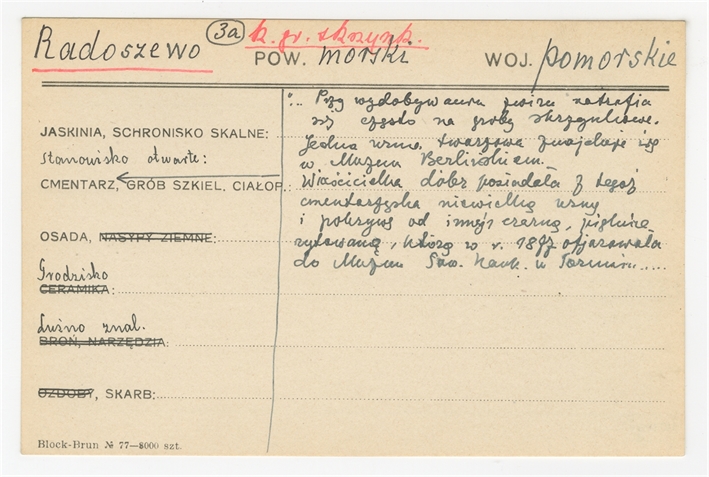 Radoszewo 3a k. gr. skrzynk.
POW. morski WOJ. pomorskie
JASKINIA, SCHRONISKO SKALNE:
Stanowisko otwarte:
CMENTARZ, GRÓB SZKIEL, CIAŁOP.:
OSADA, NASYPY ZIEMNE:
Grodzisko
CERAMIKA:
Luźno znal.
BROŃ, NARZĘDZIA:
OZDOBY, SKARB:
"... Przy wydobywaniu żwiru natrafia
się często na groby skrzynkowe.
Jedna urna, twarzowa znajduje się
w Muzeum Berlińskiem.
Właścicielka dóbr posiadała z tegoż
cmentarzyska niewielką urnę
i pokrywę od innej czarną, pięknie
rytowaną, którą w r. 1877 ofiarowała
do Muzeum Tow. Nauk. w Toruniu .....
Block-Brun № 77—8000 szt.